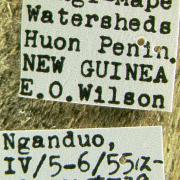 Mape
Watersheds
Huon Penin.
NEW GUINEA
E.O.Wilson
Nganduo,